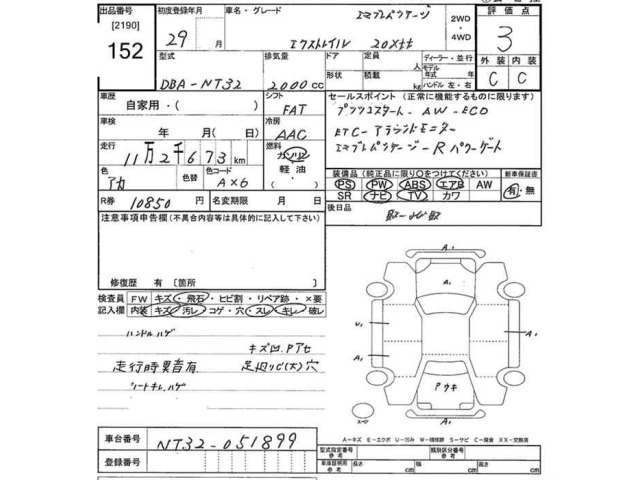 出品番号 初度登録年月 車名・グレード エマブレパッケージ 2WD 評価点
[2190] 4WD
152 29 月 エクストレイル 20Xtt 3
型式 排気量 ドア 定員 人 ディーラー・並行 外装 内装
DBA-NT32 2000cc 形状 積載 kg モデル年式 年式 ハンドル 左・右 C C
車歴 シフト セールスポイント (正常に機能するものに限ります)
自家用・( ) FAT プッシュスタート-AW-ECO
車検 冷房 ETC-アラウンドモニター
年 月( ) AAC エマブレパッケージ-Rパワーゲート
走行 燃料
11万2千673km ガソリン
軽油
色 色替 色コード 装備品(純正品に限り○をつけてください) 新車保証書
アカ AX6 PS PW ABS エアB AW 有・無
SR ナビ TV カワ
R券 10850円 名変期限 月 日 後日品
注意事項申告欄(不具合内容等は具体的に記入して下さい) 取-ナビ取
修復歴 有 [箇所 ]
検査員 FW キズ・飛石・ヒビ割・リペア跡・×要
記入欄 内装 キズ 汚レ コゲ・穴 スレ キレ 破レ
ハンドルハゲ
キズ凹Pアセ
走行時異音有 足廻りサビ(大)穴
シートキレ,ハゲ
A1
A1
U1 A1
A1
Pウキ
A1
スペア
A-キズ E-エクボ U-凹み W-補修跡 S-サビ C-腐食 XX-交換済
車台番号 NT32-051899
登録番号
型式指定番号 類別区分番号
車庫証明用 長さ cm 幅 cm 高さ cm